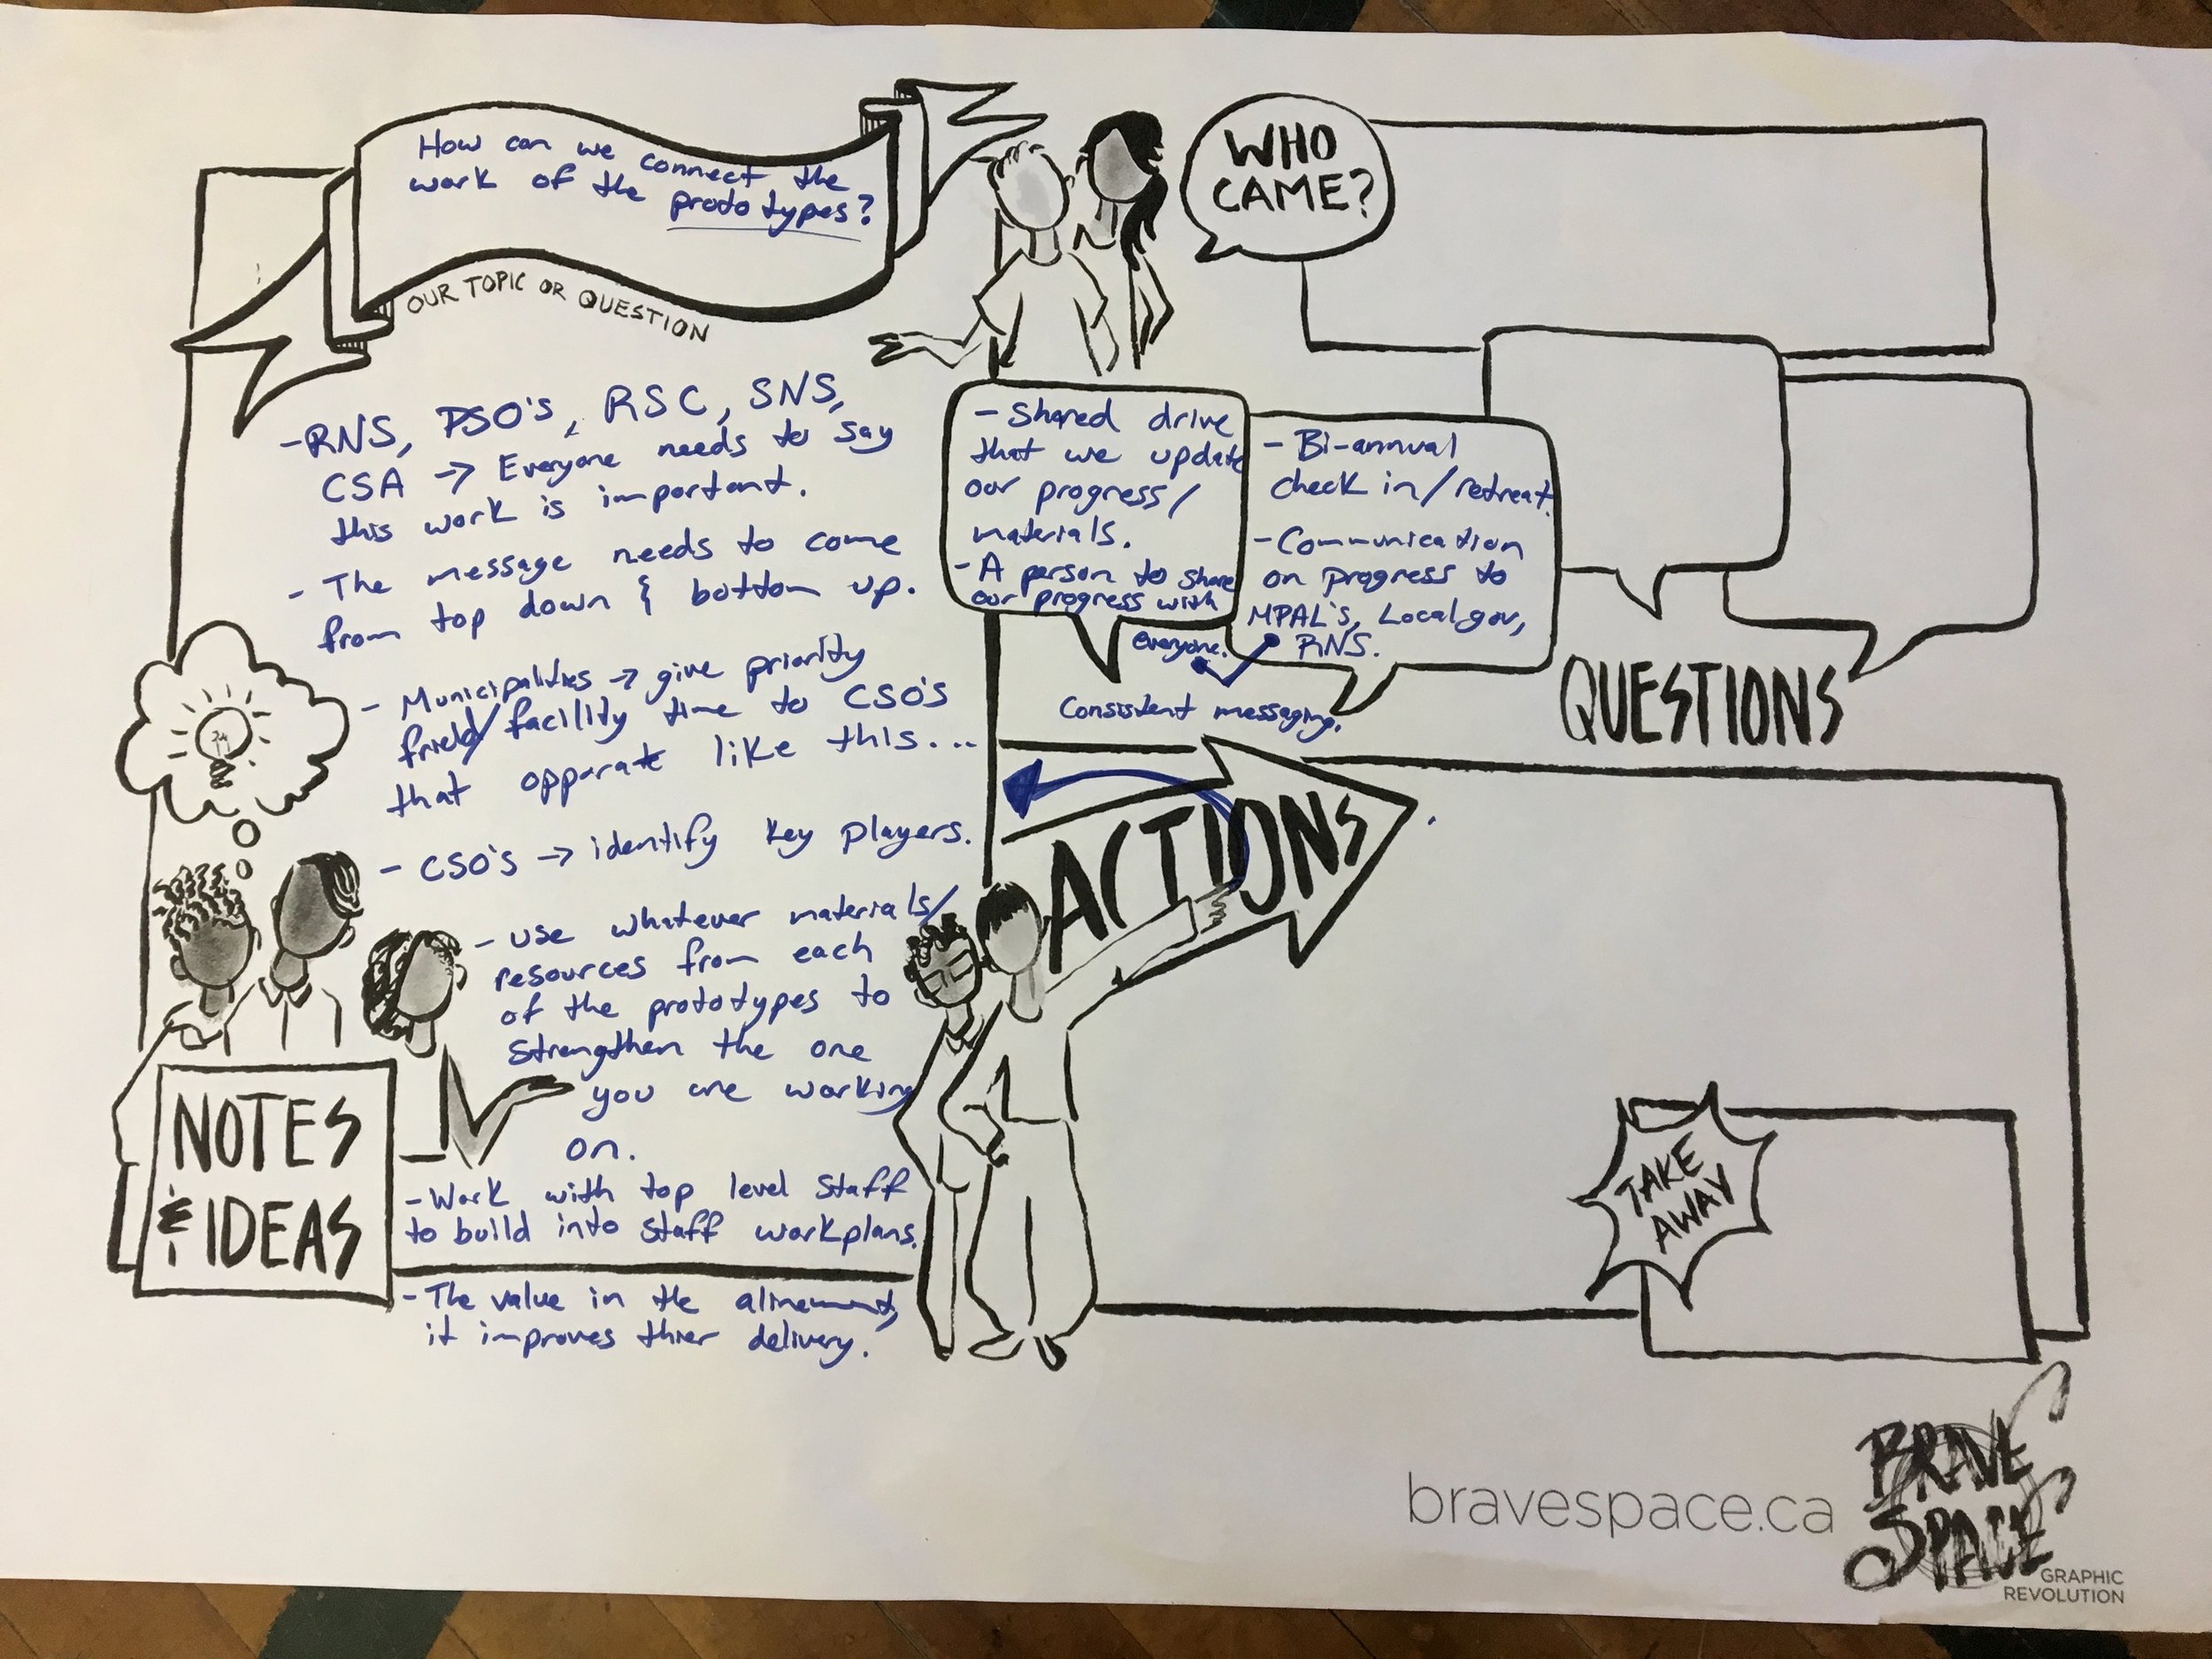 How can we connect the
work of the prototypes?
OUR TOPIC OR QUESTION
WHO
CAME?
-RNS, PSO's, RSC, SNS,
CSA → Everyone needs to say
this work is important.
- The message needs to come
from top down & bottom up.
- Municipalities → give priority
frield/facility time to CSO's
that opparate like this...
- CSO's → identify key players.
- use whatever materials/
resources from each
of the prototypes to
strengthen the one
you are working
on.
- Work with top level staff
to build into staff workplans.
- The value in the alinement,
it improves thier delivery.
NOTES
& IDEAS
- Shared drive
that we update
our progress/
materials.
- A person to share
our progress with
everyone.
- Bi-annual
check in/retreat.
- Communication
on progress to
MPAL's, Local gov,
RNS.
Consistent messaging.
QUESTIONS
ACTIONS
TAKE
AWAY
bravespace.ca
BRAVE
SPACE
GRAPHIC
REVOLUTION